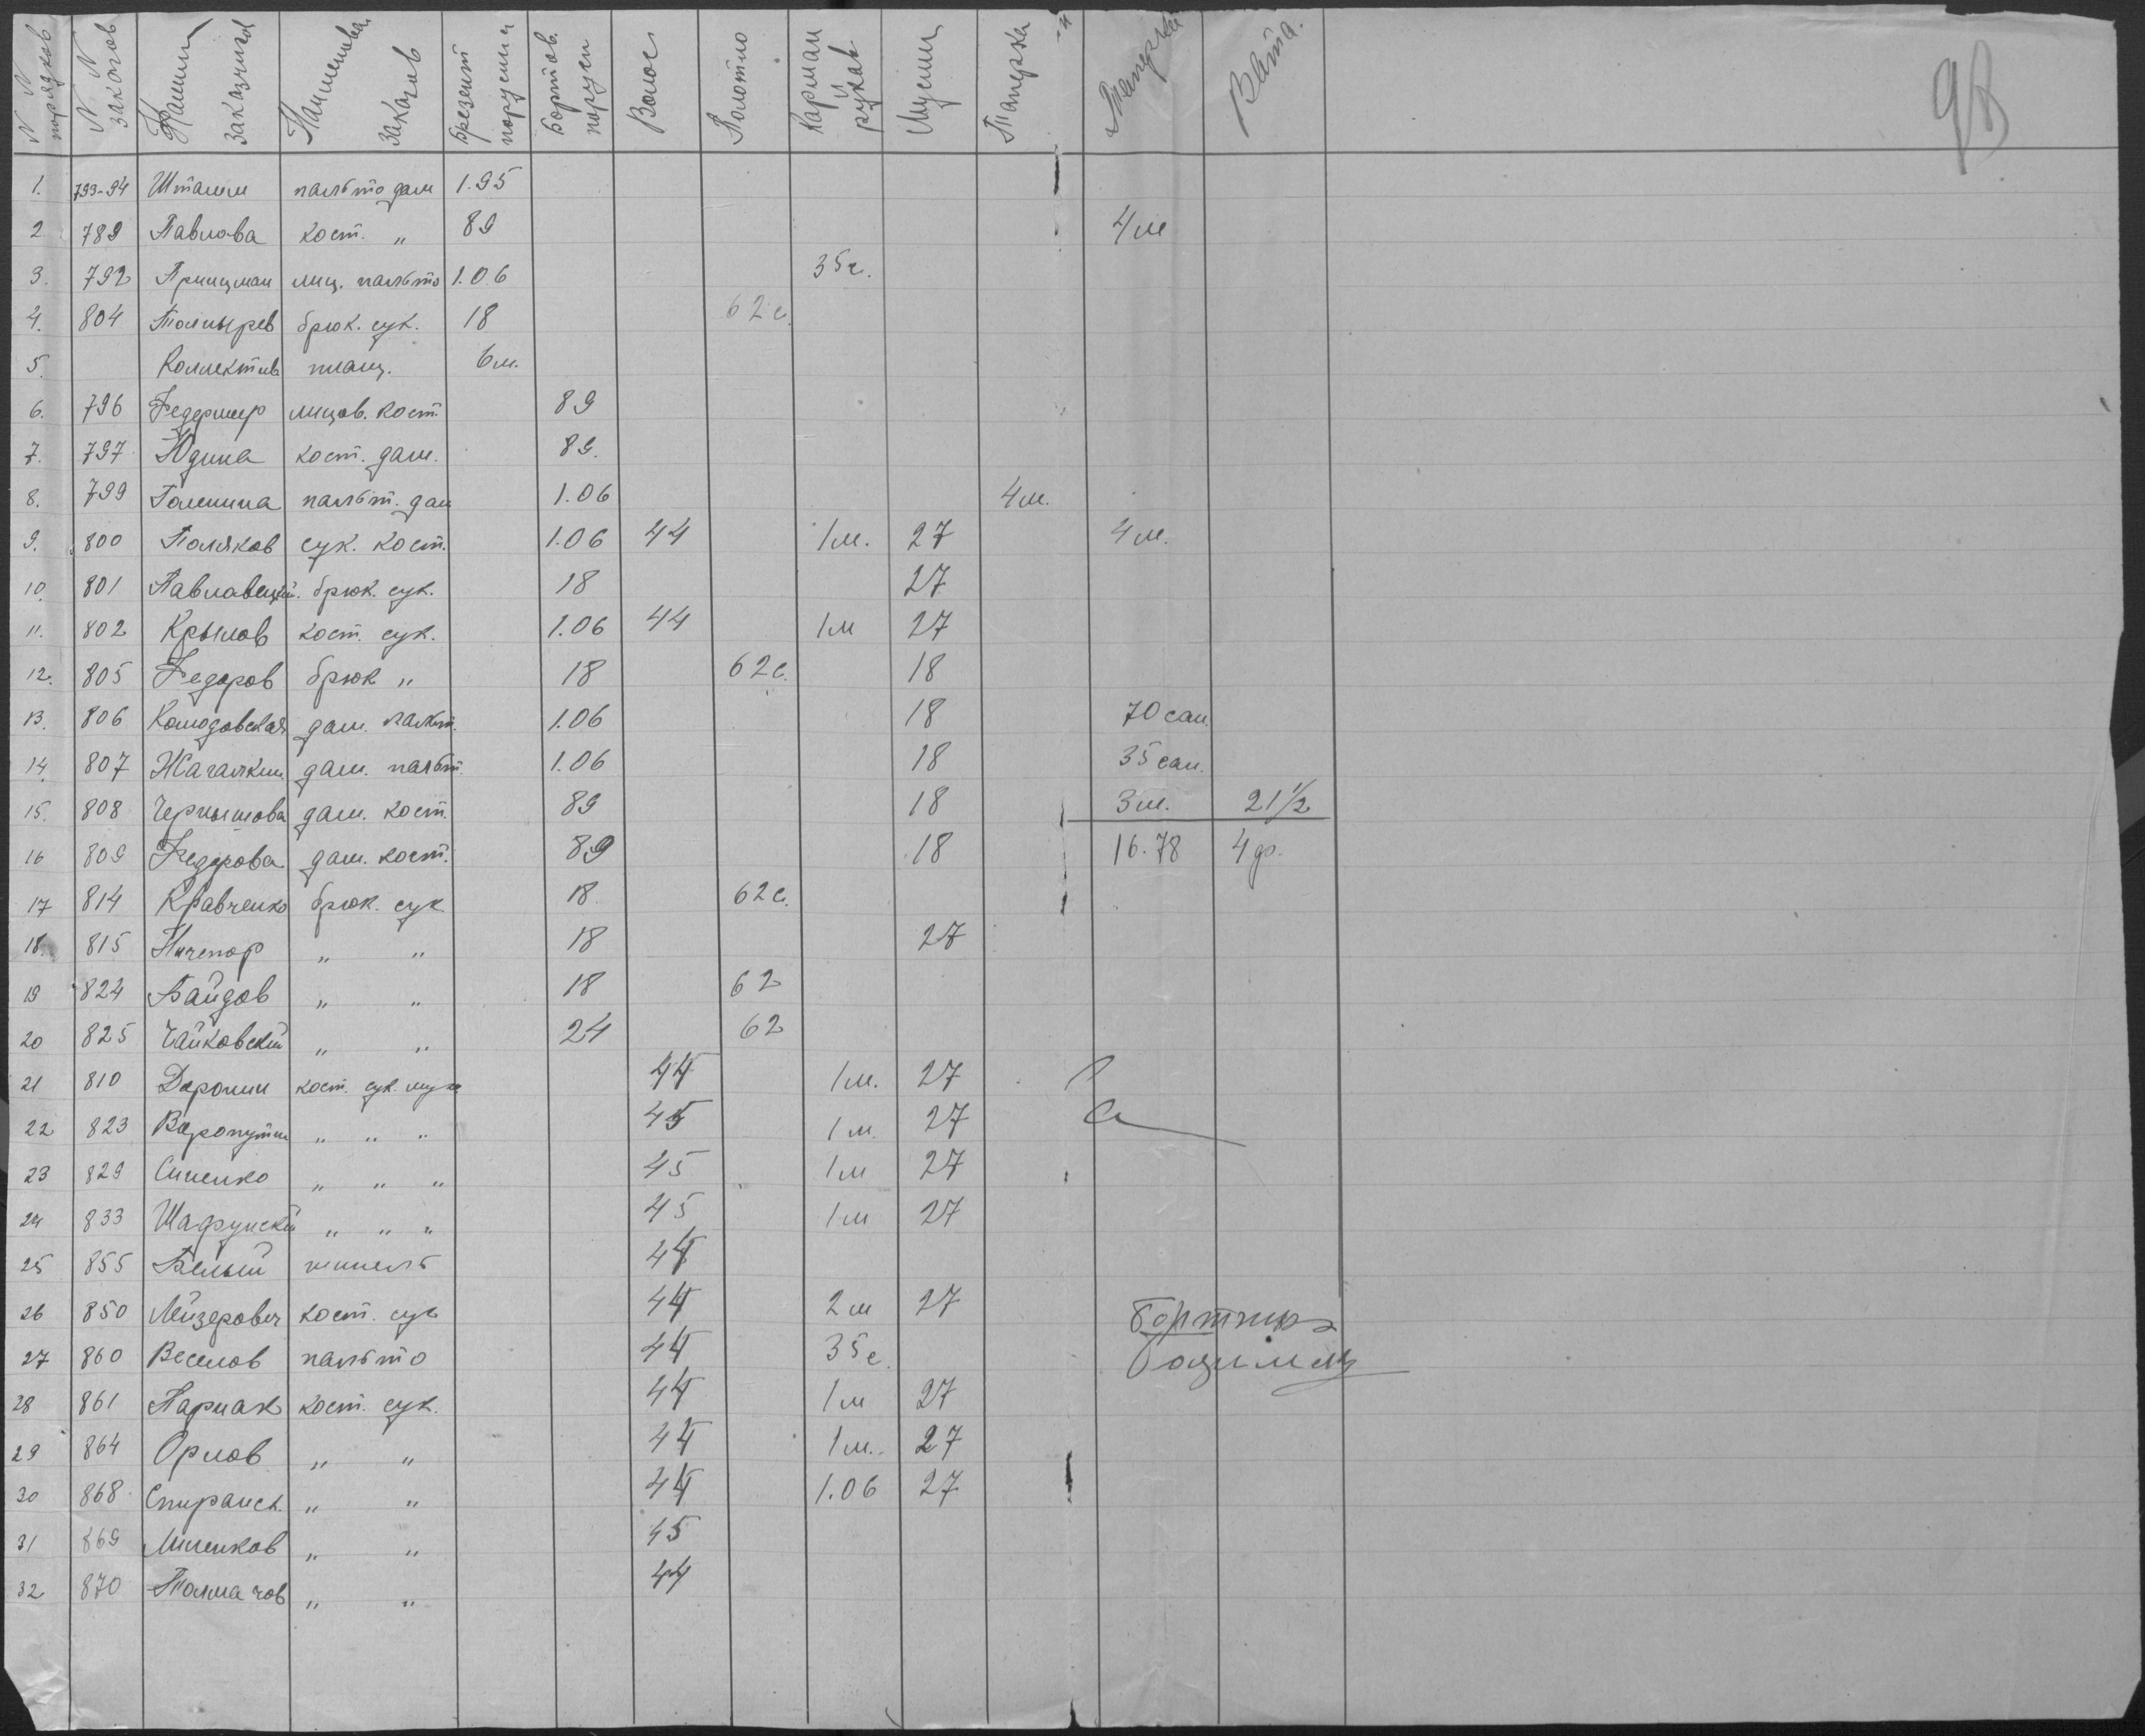 98
N N порядков | N N заказов | Фамили заказчиков | Наименован заказов | Брезент парусина | Бортов. парусин | Волос | Полотно | Карман и рукав | Муслин | Таперка | Ватга.
1. 793-94 Штамм пальто дам 1.95
2 789 Павлова кост. „ 89 4 м
3. 792 Принцман лиц. пальто 1.06 35 с.
4. 804 брюк. сук. 18 62 с.
5. Коллектив плащ. 6 м.
6. 796 лицов. кост. 89
7. 797 Юдина кост. дам. 89.
8. 799 Галинина пальт. дам 1.06 4 м.
9. 800 Поляков сук. кост. 1.06 44 1 м. 27 4 м.
10. 801 брюк. сук. 18 27
11. 802 Крылов кост. сук. 1.06 44 1 м 27
12. 805 Федоров брюк „ 18 62 с. 18
13. 806 дам. пальт. 1.06 18 70 сан.
14. 807 дам. пальт. 1.06 18 35 сан.
15. 808 Чернышова дам. кост. 89 18 3 м. 21 1/2
16 809 Федорова дам. кост. 89 18 16.78 4 ф.
17 814 Кравченко брюк. сук 18 62 с.
18. 815 Ничепор „ „ 18 27
19 824 Байдов „ „ 18 62
20 825 Чайковский „ „ 24 62
21 810 Доронин кост. сук. муж 44 1 м. 27
22 823 „ „ „ 45 1 м. 27
23 829 Синенко „ „ „ 45 1 м 27
24 833 Шафрунский „ „ „ 45 1 м 27
25 855 Белый шинель 44
26 850 Лейзерович кост. сук 44 2 м 27
27 860 Веселов пальто 44 35 с.
28 861 Парнак кост. сук. 44 1 м 27
29 864 Орлов „ „ 44 1 м. 27
30 868. Спиранск. „ „ 44 1.06 27
31 869 Миленков „ „ 45
32 870 Толмачов „ „ 44